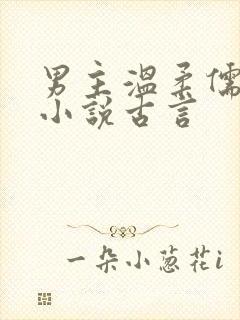 男主温柔儒
小說古言
一朵小葱花i